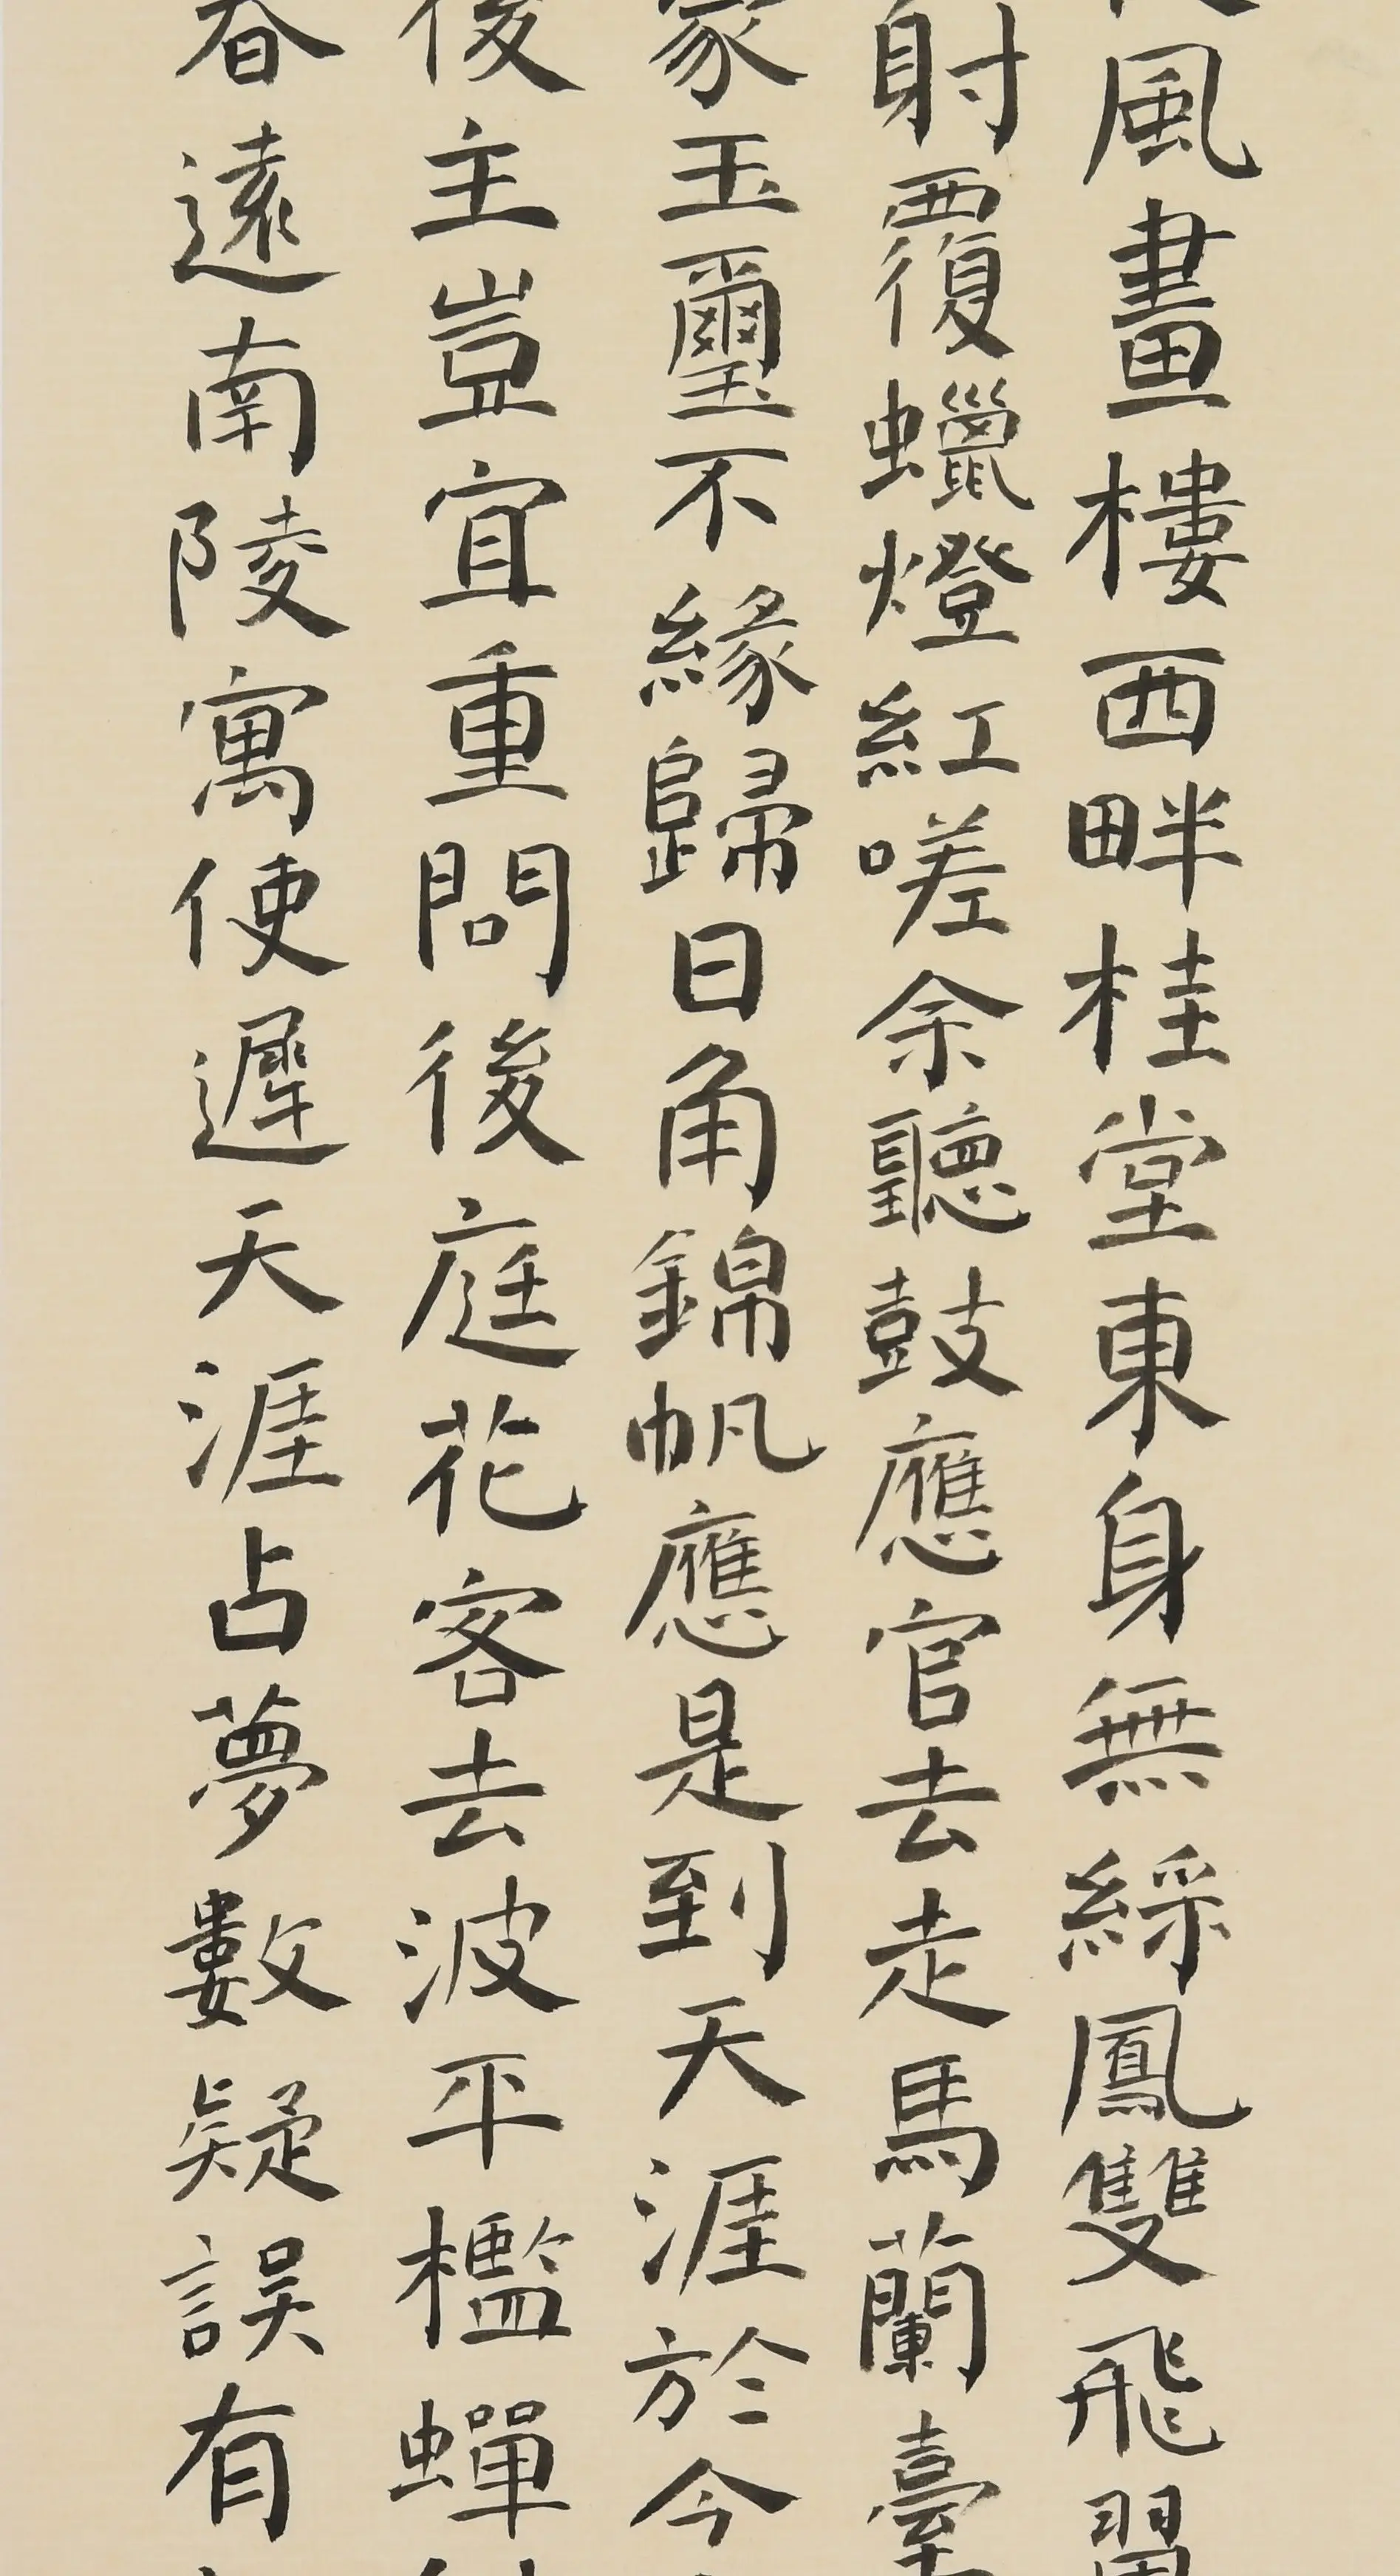 風畫樓西畔桂堂東身無綵鳳雙飛翼
射覆蠟燈紅嗟余聽鼓應官去走馬蘭臺
家玉璽不緣歸日角錦帆應是到天涯方於今
後主豈宜重問後庭花客去波平檻蟬
春遠南陵寓使遲天涯占夢數疑誤有